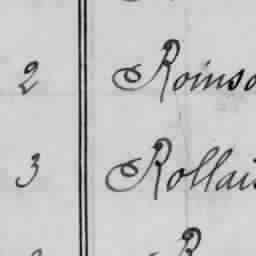 2 Roinso
3 Rollais